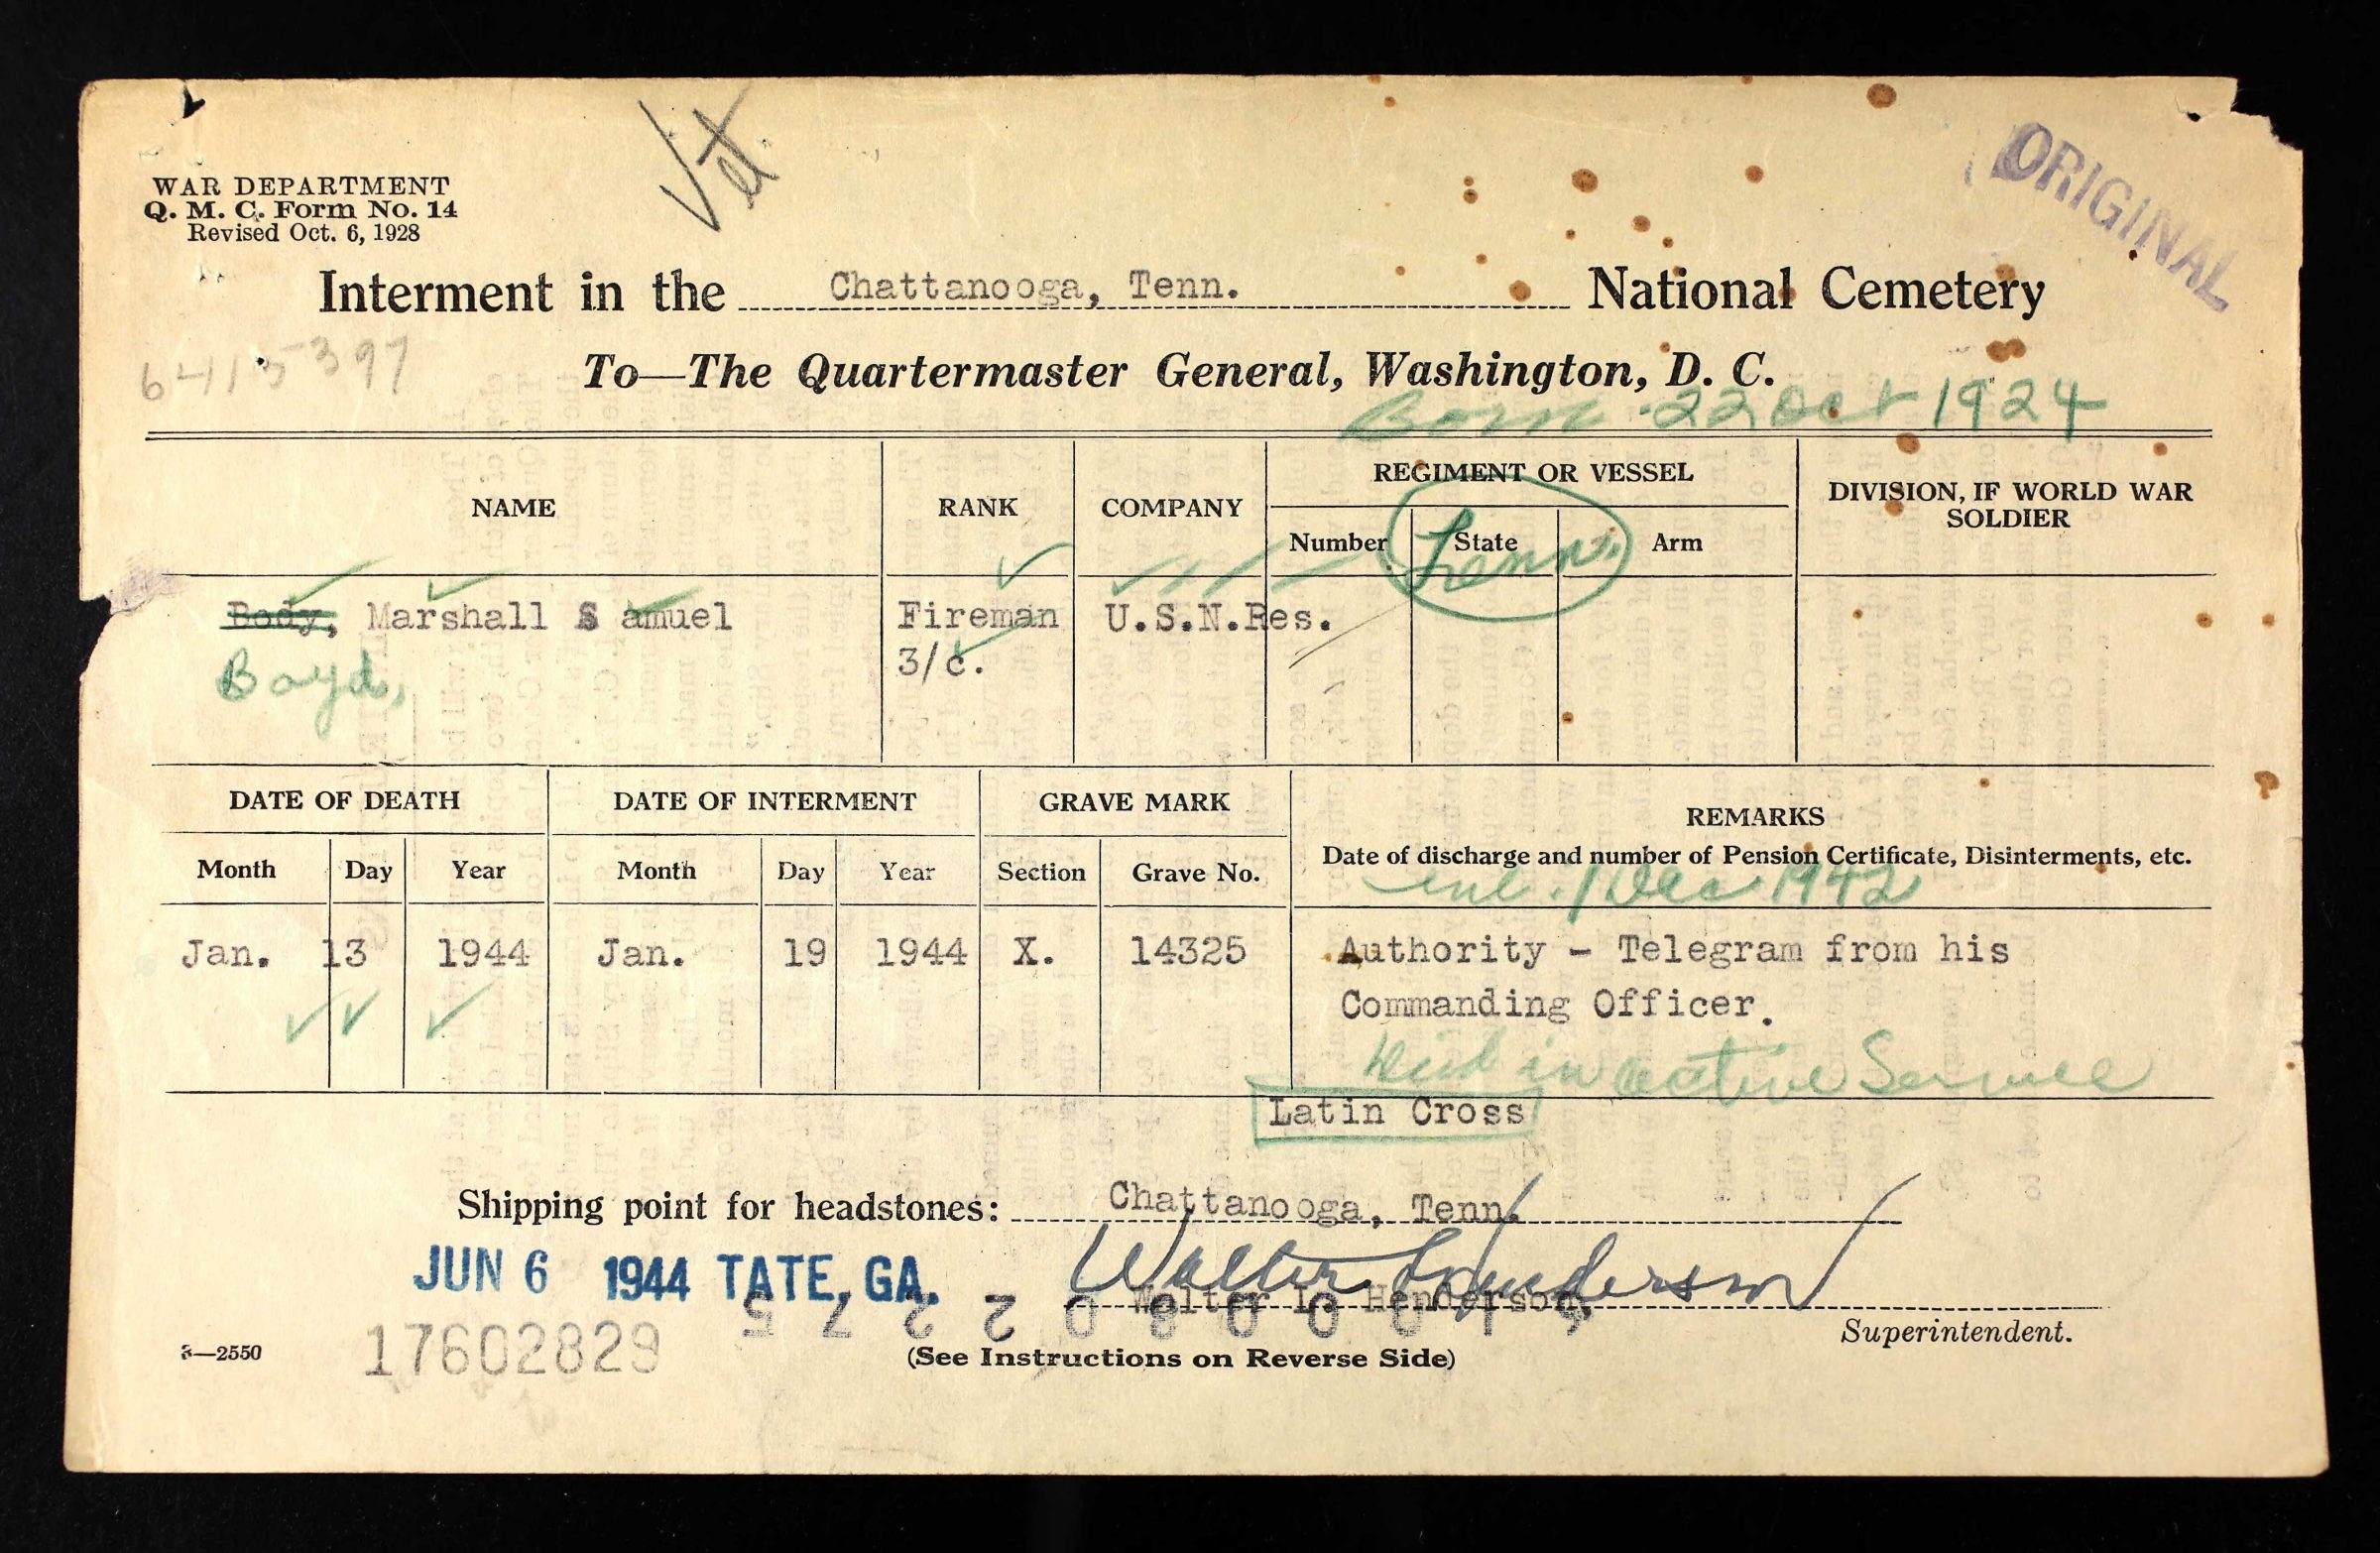 Vet
ORIGINAL
WAR DEPARTMENT
Q. M. C. Form No. 14
Revised Oct. 6, 1928
Interment in the Chattanooga, Tenn. National Cemetery
6415397
To—The Quartermaster General, Washington, D. C.
Born 22 Oct 1924
NAME RANK COMPANY REGIMENT OR VESSEL DIVISION, IF WORLD WAR SOLDIER
Number State Arm
Tenn.
Body, Marshall S amuel Fireman U.S.N.Res.
Boyd, 3/c.
DATE OF DEATH DATE OF INTERMENT GRAVE MARK REMARKS
Date of discharge and number of Pension Certificate, Disinterments, etc.
Month Day Year Month Day Year Section Grave No.
enl. 1 Dec 1942
Jan. 13 1944 Jan. 19 1944 X. 14325 Authority - Telegram from his
Commanding Officer.
Died in active Service
Latin Cross
Shipping point for headstones: Chattanooga, Tenn.
JUN 6 1944 TATE, GA.
Walter L. Henderson
Walter L. Henderson,
Superintendent.
3—2550
17602829
(See Instructions on Reverse Side)